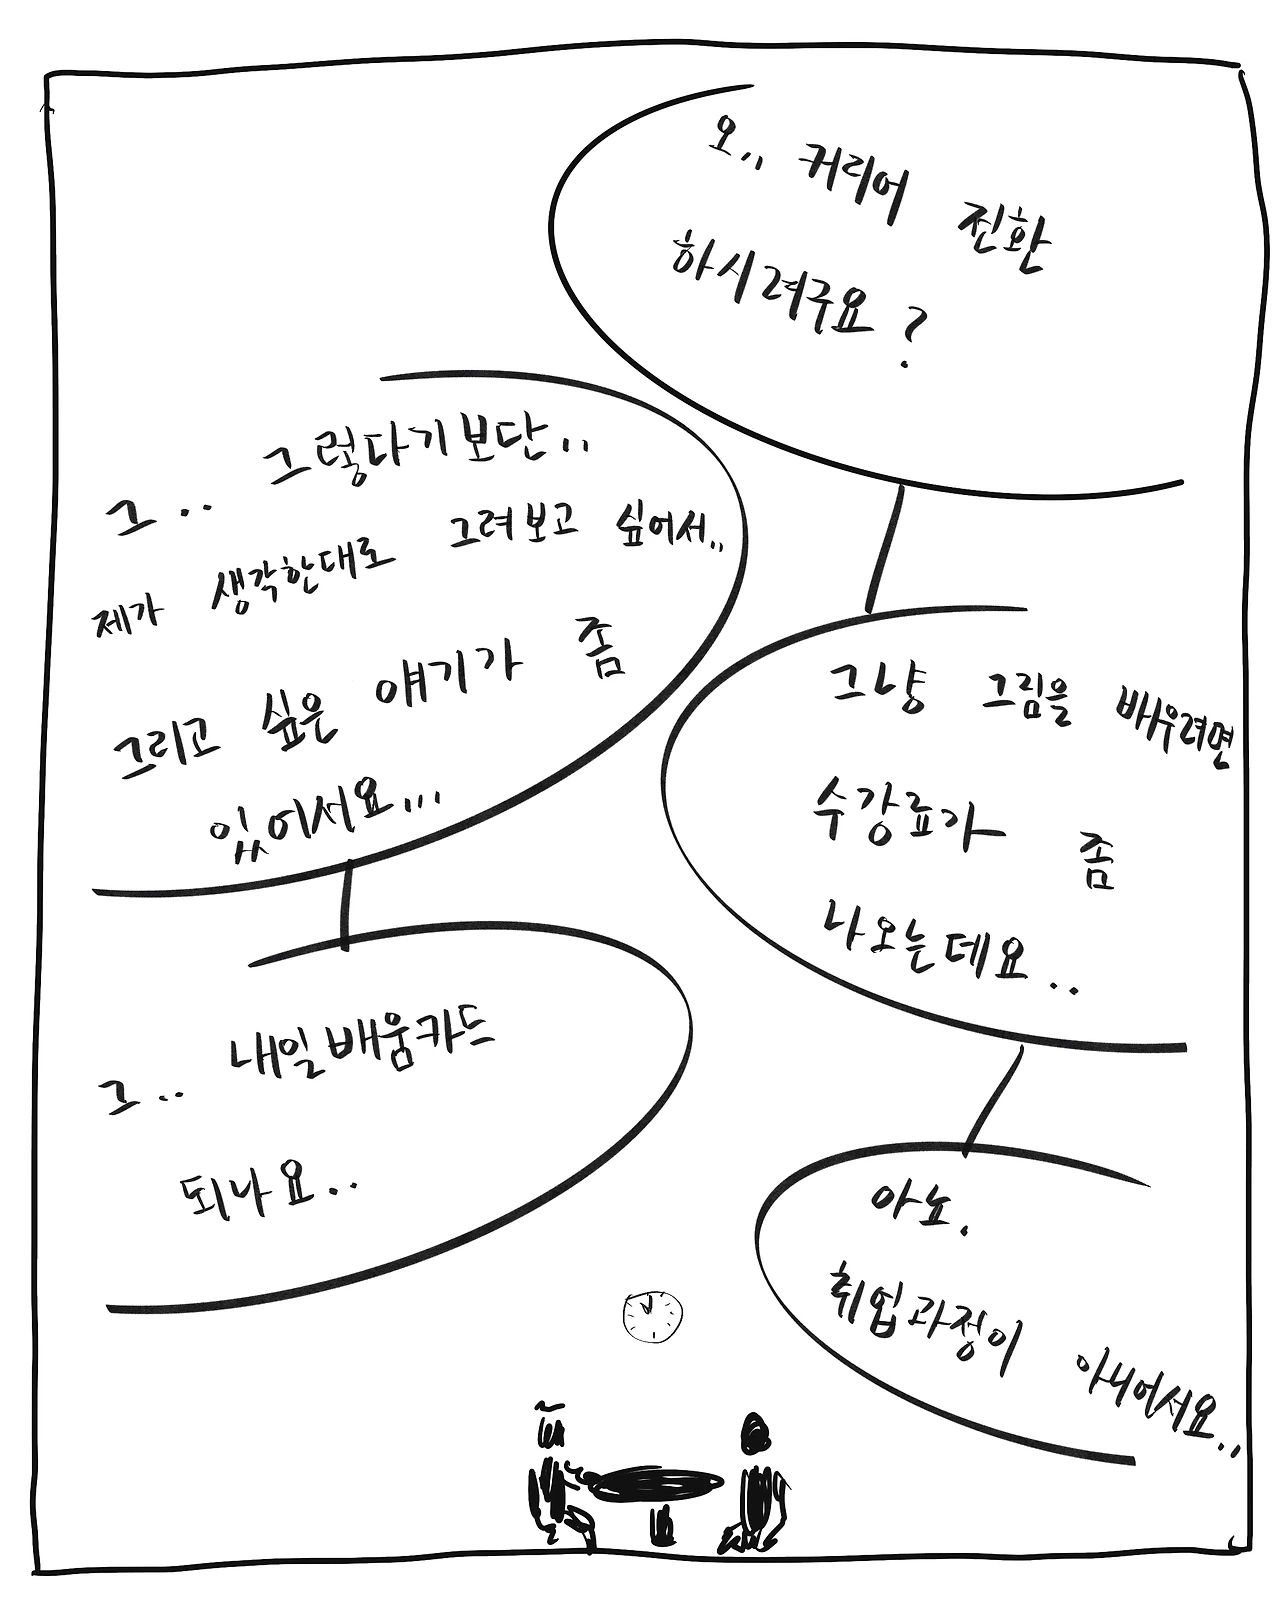 오.. 커리어 전환
하시려구요?
그.. 그렇다기보단..
제가 생각한대로 그려보고 싶어서..
그리고 싶은 얘기가 좀
있어서요...
그냥 그림을 배우려면
수강료가 좀
나오는데요..
그.. 내일배움카드
되나요..
아뇨.
취업과정이 아니어서요..